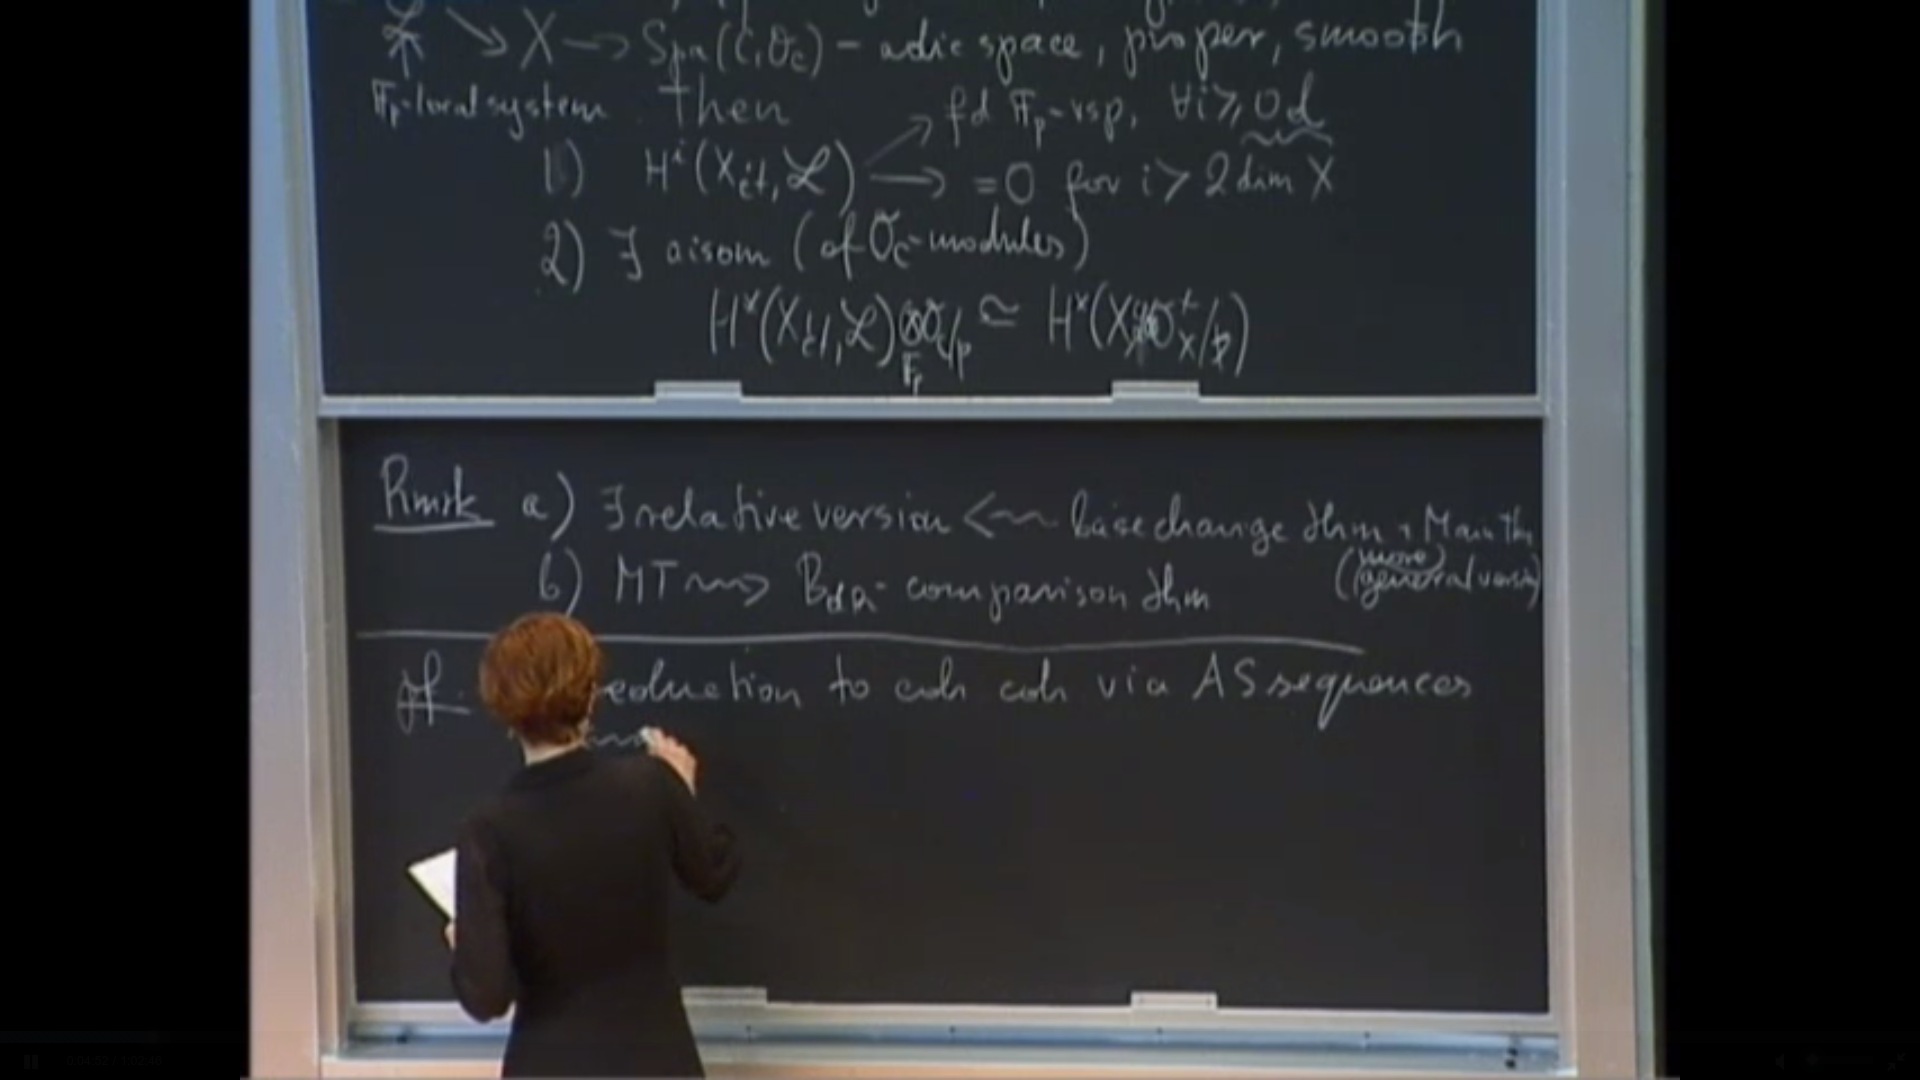 𝓛 ↘ X → Spa(C, O_C) – adic space, proper, smooth
𝔽_p-local system. Then fd 𝔽_p-vsp, ∀i ≥ 0
1) H^i(X_ét, 𝓛) → = 0 for i > 2 dim X
2) ∃ aisom (of O_C-modules)
H^*(X_ét, 𝓛) ⊗_{𝔽_p} O_C/p ≃ H^*(X, O_X^+/p)
Rmrk a) ∃ relative version ⇜ base change thm + Main Thm
(more general version)
b) MT ⇝ B_dR-comparison thm
pf. reduction to coh coh via AS sequences
0:04:53 / 1:02:48